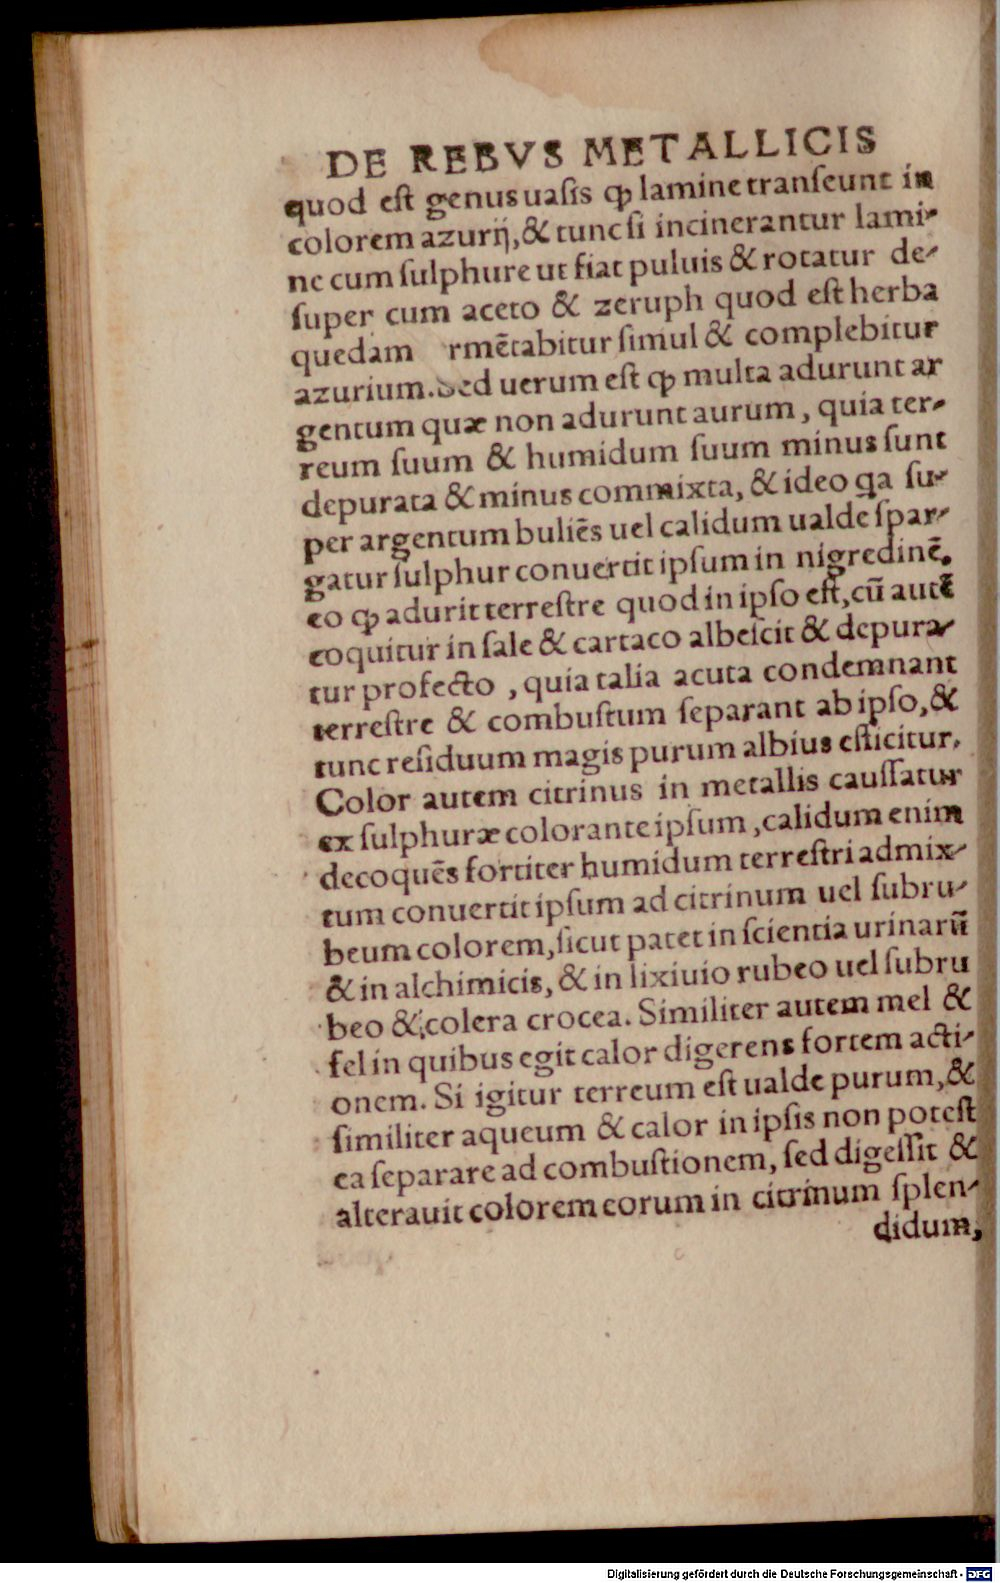 DE REBVS METALLICIS
quod est genus uasis ꝙ lamine transeunt in
colorem azurij, & tunc si incinerantur lami-
ne cum sulphure ut fiat puluis & rotatur de-
super cum aceto & zeruph quod est herba
quedam rmētabitur simul & complebitur
azurium. Sed uerum est ꝙ multa adurunt ar
gentum quæ non adurunt aurum, quia ter-
reum suum & humidum suum minus sunt
depurata & minus commixta, & ideo qa su-
per argentum buliēs uel calidum ualde spar-
gatur sulphur conuertit ipsum in nigredinē.
eo ꝙ adurit terrestre quod in ipso est, cū autē
coquitur in sale & cartaco albescit & depura-
tur profecto, quia talia acuta condemnant
terrestre & combustum separant ab ipso, &
tunc residuum magis purum albius esticitur.
Color autem citrinus in metallis caussatur
ex sulphuræ colorante ipsum, calidum enim
decoquēs fortiter humidum terrestri admix-
tum conuertit ipsum ad citrinum uel subru-
beum colorem, sicut patet in scientia urinarū
& in alchimicis, & in lixiuio rubeo uel subru
beo & colera crocea. Similiter autem mel &
fel in quibus egit calor digerens fortem acti-
onem. Si igitur terreum est ualde purum, &
similiter aqueum & calor in ipsis non potest
ea separare ad combustionem, sed digessit &
alterauit colorem eorum in citrinum splen-
didum,
Digitalisierung gefördert durch die Deutsche Forschungsgemeinschaft - DFG